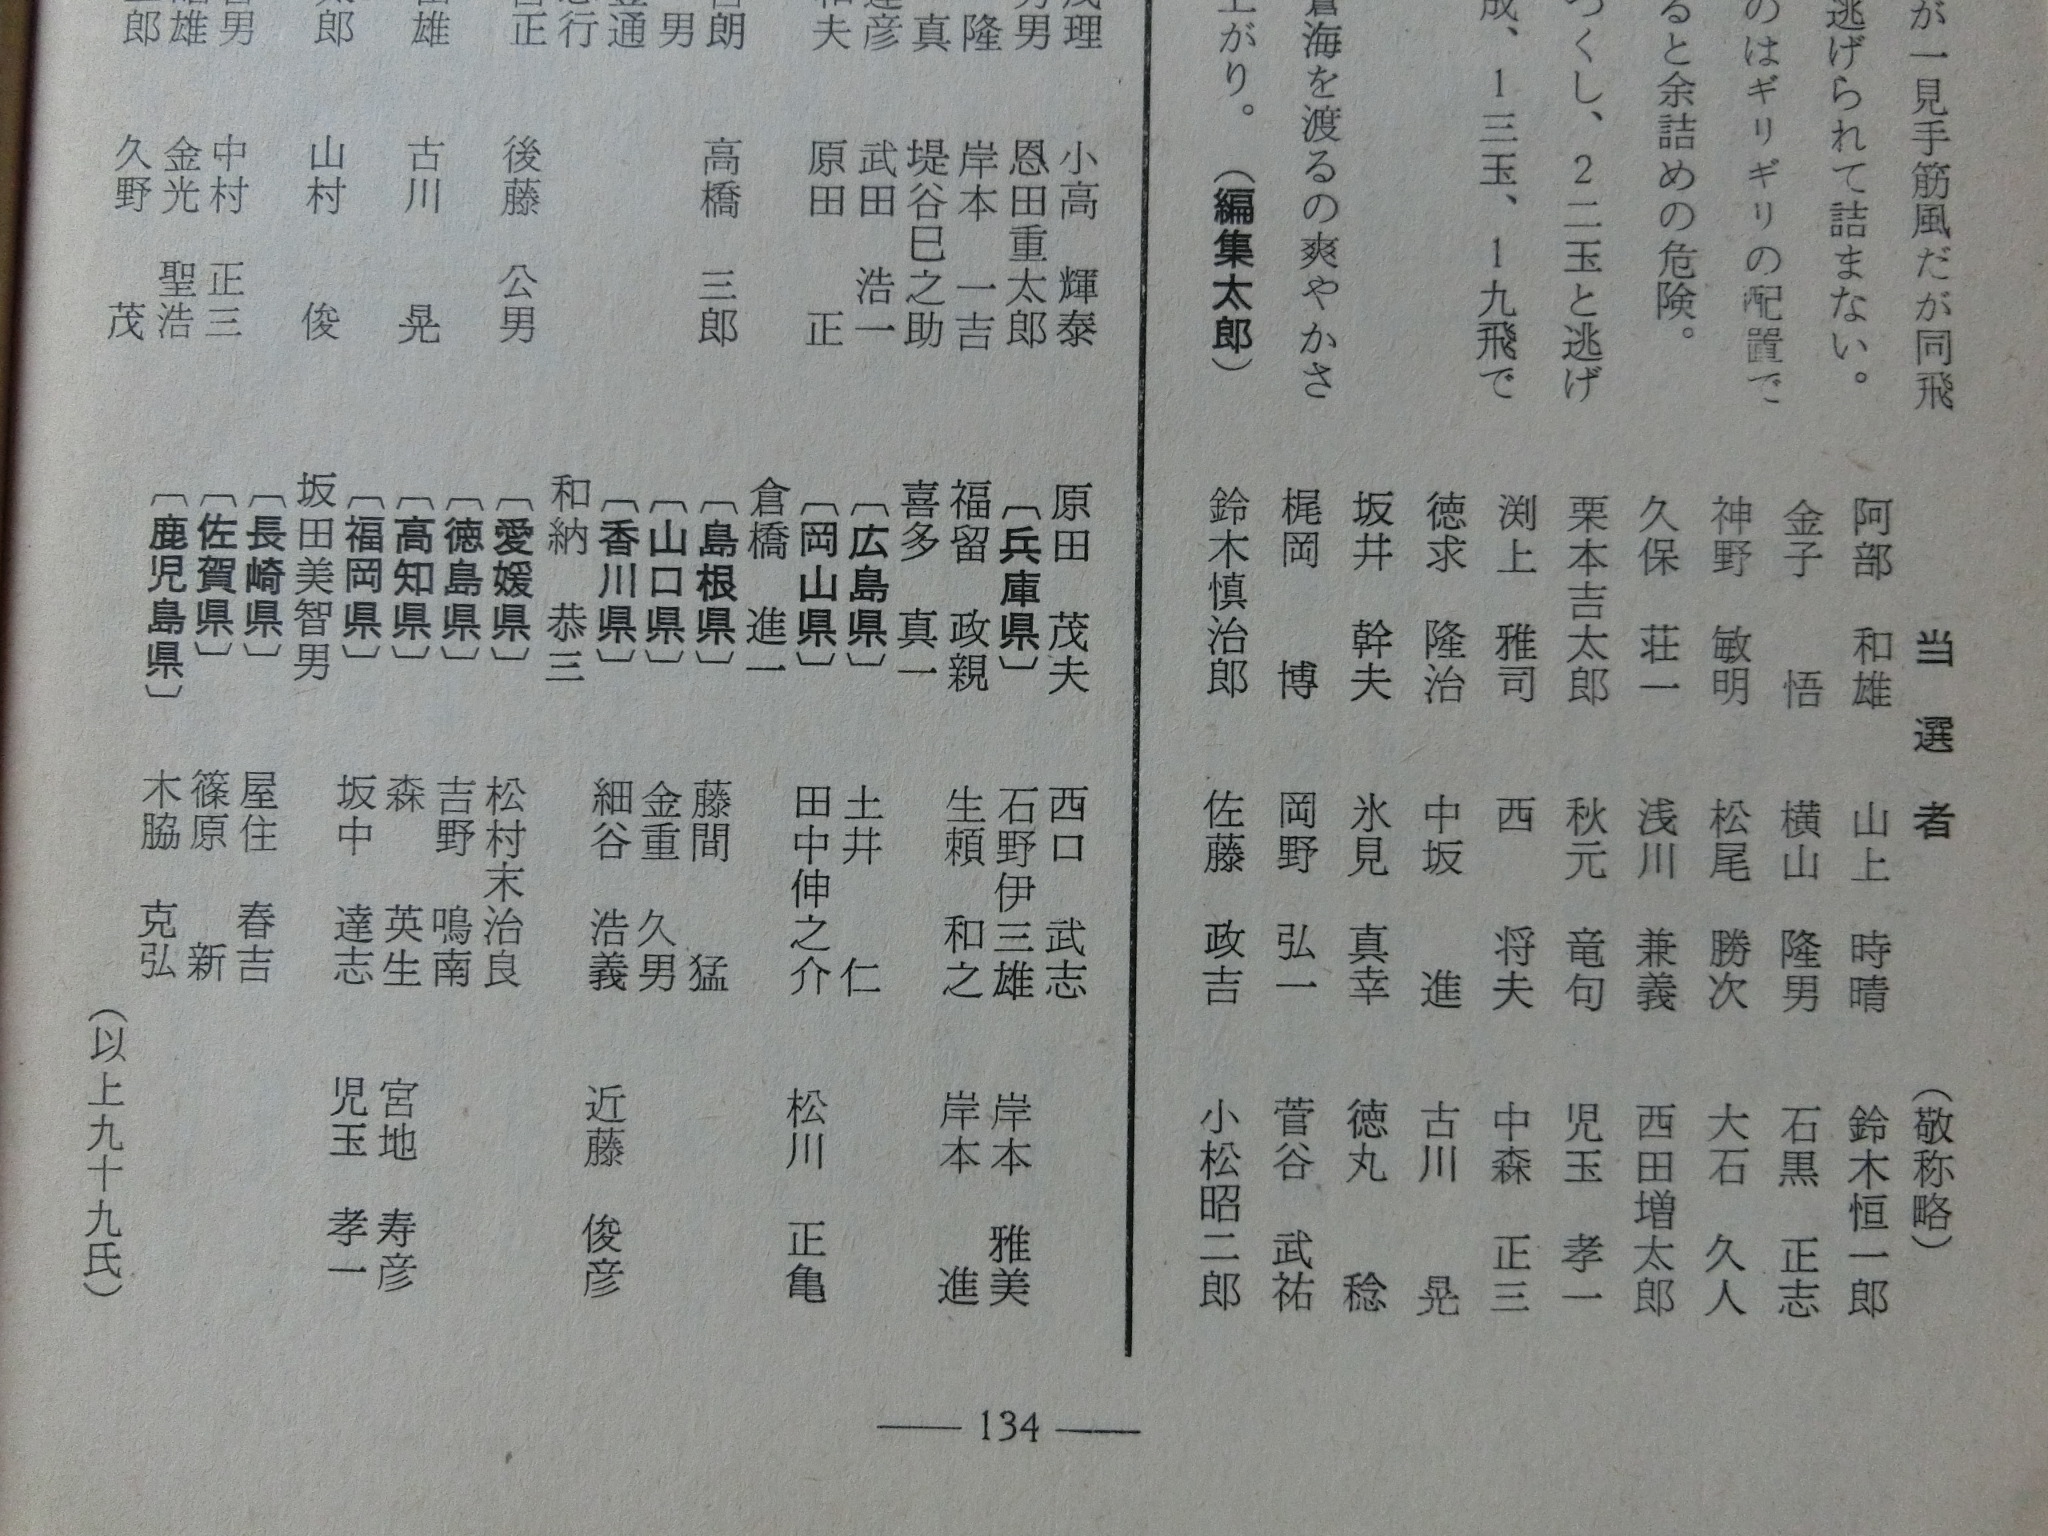 が一見手筋風だが同飛
逃げられて詰まない。
のはギリギリの配置で
ると余詰めの危険。
つくし、2二玉と逃げ
成、1三玉、1九飛で
蒼海を渡るの爽やかさ
上がり。（編集太郎）
当選者（敬称略）
阿部和雄 山上時晴 鈴木恒一郎
金子悟 横山隆男 石黒正志
神野敏明 松尾勝次 大石久人
久保荘一 浅川兼義 西田増太郎
栗本吉太郎 秋元竜句 児玉孝一
渕上雅司 西将夫 中森正三
徳求隆治 中坂進 古川晃
坂井幹夫 氷見真幸 徳丸稔
梶岡博 岡野弘一 菅谷武祐
鈴木慎治郎 佐藤政吉 小松昭二郎
理 小高輝泰
男 恩田重太郎
隆 岸本一吉
真 堤谷巳之助
達彦 武田浩一
和夫 原田正
朗 高橋三郎
男
登通
行
正 後藤公男
雄 古川晃
郎 山村俊
男 中村正三
雄 金光聖浩
郎 久野茂
原田茂夫 西口武志
〔兵庫県〕 石野伊三雄 岸本雅美
福留政親 生頼和之 岸本進
喜多真一
〔広島県〕 土井仁
〔岡山県〕 田中伸之介 松川正亀
倉橋進一
〔島根県〕 藤間猛
〔山口県〕 金重久男
〔香川県〕 細谷浩義 近藤俊彦
和納恭三
〔愛媛県〕 松村末治良
〔徳島県〕 吉野鳴南
〔高知県〕 森英生 宮地寿彦
〔福岡県〕 坂中達志 児玉孝一
坂田美智男
〔長崎県〕 屋住春吉
〔佐賀県〕 篠原新
〔鹿児島県〕 木脇克弘
（以上九十九氏）
134